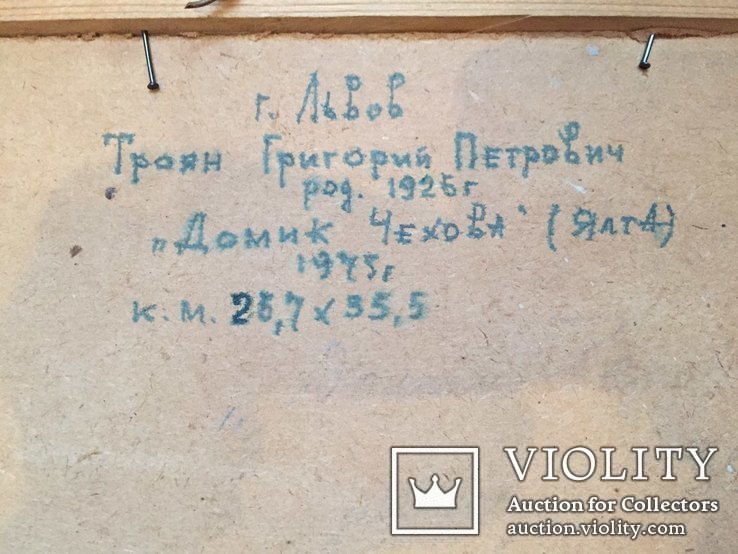 г. Львов
Троян Григорий Петрович
род. 1925г
„Домик Чехова“ (Ялта)
1975г
к.м. 25,7х35,5
VIOLITY
Auction for Collectors
auction.violity.com